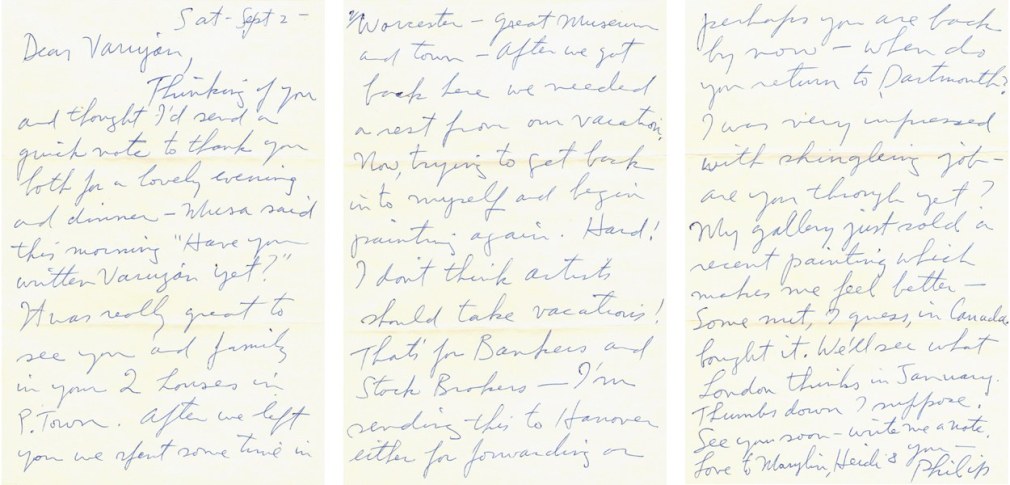 Sat - Sept 2 -
Dear Varujan,
Thinking of you
and thought I'd send a
quick note to thank you
both for a lovely evening
and dinner - Musa said
this morning "Have you
written Varujan yet?"
It was really great to
see you and family
in your 2 houses in
P.Town. After we left
you we spent some time in
Worcester - great Museum
and town - After we got
back here we needed
a rest from our vacation.
Now, trying to get back
into myself and begin
painting again. Hard!
I don't think artists
should take vacations!
That's for Bankers and
Stock Brokers - I'm
sending this to Hanover
either for forwarding or
perhaps you are back
by now - when do
you return to Dartmouth?
I was very impressed
with shingleing job -
are you through yet?
My gallery just sold a
recent painting which
makes me feel better -
Some nut, I guess, in Canada
bought it. We'll see what
London thinks in January.
Thumbs down I suppose.
See you soon - write me a note.
Love to Marylin, Heidi & you -
Philip